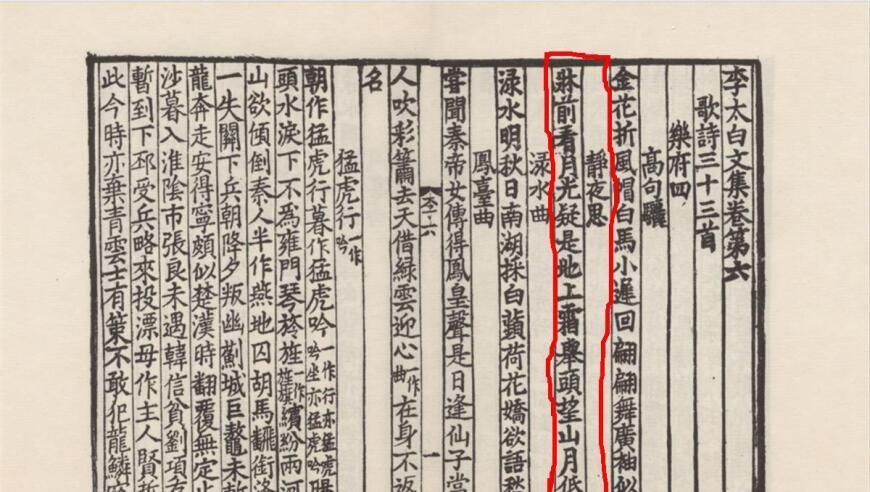 李太白文集卷第六
歌詩三十三首
樂府四
高句驪
金花折風帽白馬小遲回翩翩舞廣袖似
靜夜思
牀前看月光疑是地上霜舉頭望山月低
淥水曲
淥水明秋日南湖採白蘋荷花嬌欲語愁
鳳臺曲
嘗聞秦帝女傳得鳳皇聲是日逢仙子當
一
人吹彩簫去天借綠雲迎心一作曲在身不返
名
猛虎行一作吟
朝作猛虎行暮作猛虎吟一作行亦猛虎吟坐亦猛虎吟腸
頭水淚下不為雍門琴旌一作旌旗繽紛兩河
山欲傾倒秦人半作燕地囚胡馬翻銜洛
一失關下兵朝降夕叛幽薊城巨鼇未斬
龍奔走安得寧頗似楚漢時翻覆無定止
沙暮入淮陰市張良未遇韓信貧劉項存
暫到下邳受兵略來投漂母作主人賢哲
此今時亦棄青雲士有策不敢犯龍鱗